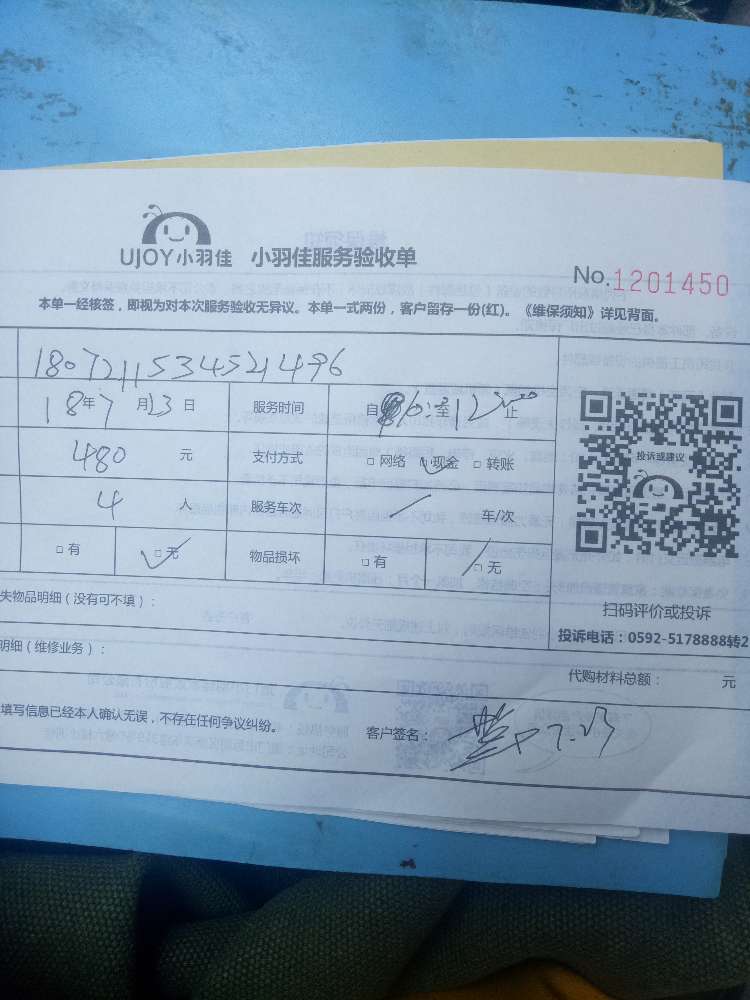 UJOY小羽佳 小羽佳服务验收单
No.1201450
本单一经核签，即视为对本次服务验收无异议。本单一式两份，客户留存一份(红)。《维保须知》详见背面。
1807211534521496
18年7月23日 服务时间 自 至12 止
480 元 支付方式 □网络 □现金 □转账
投诉或建议
4 人 服务车次 车/次
□有 □无 物品损坏 □有 □无
扫码评价或投诉
失物品明细（没有可不填）：
投诉电话：0592-5178888转2
明细（维修业务）：
代购材料总额： 元
填写信息已经本人确认无误，不存在任何争议纠纷。 客户签名： 7.23